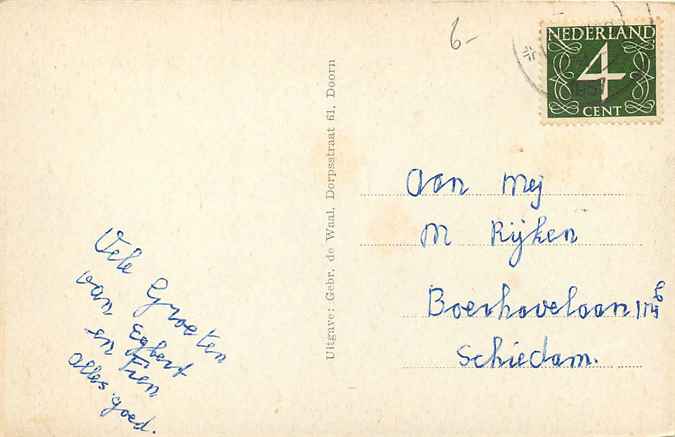 6-
NEDERLAND
4
CENT
Uitgave: Gebr. de Waal, Dorpsstraat 61, Doorn
Aan Mej
M Rijken
Boerhavelaan
Schiedam.
Vele Groeten
van Egbert
en Fien
alles goed.